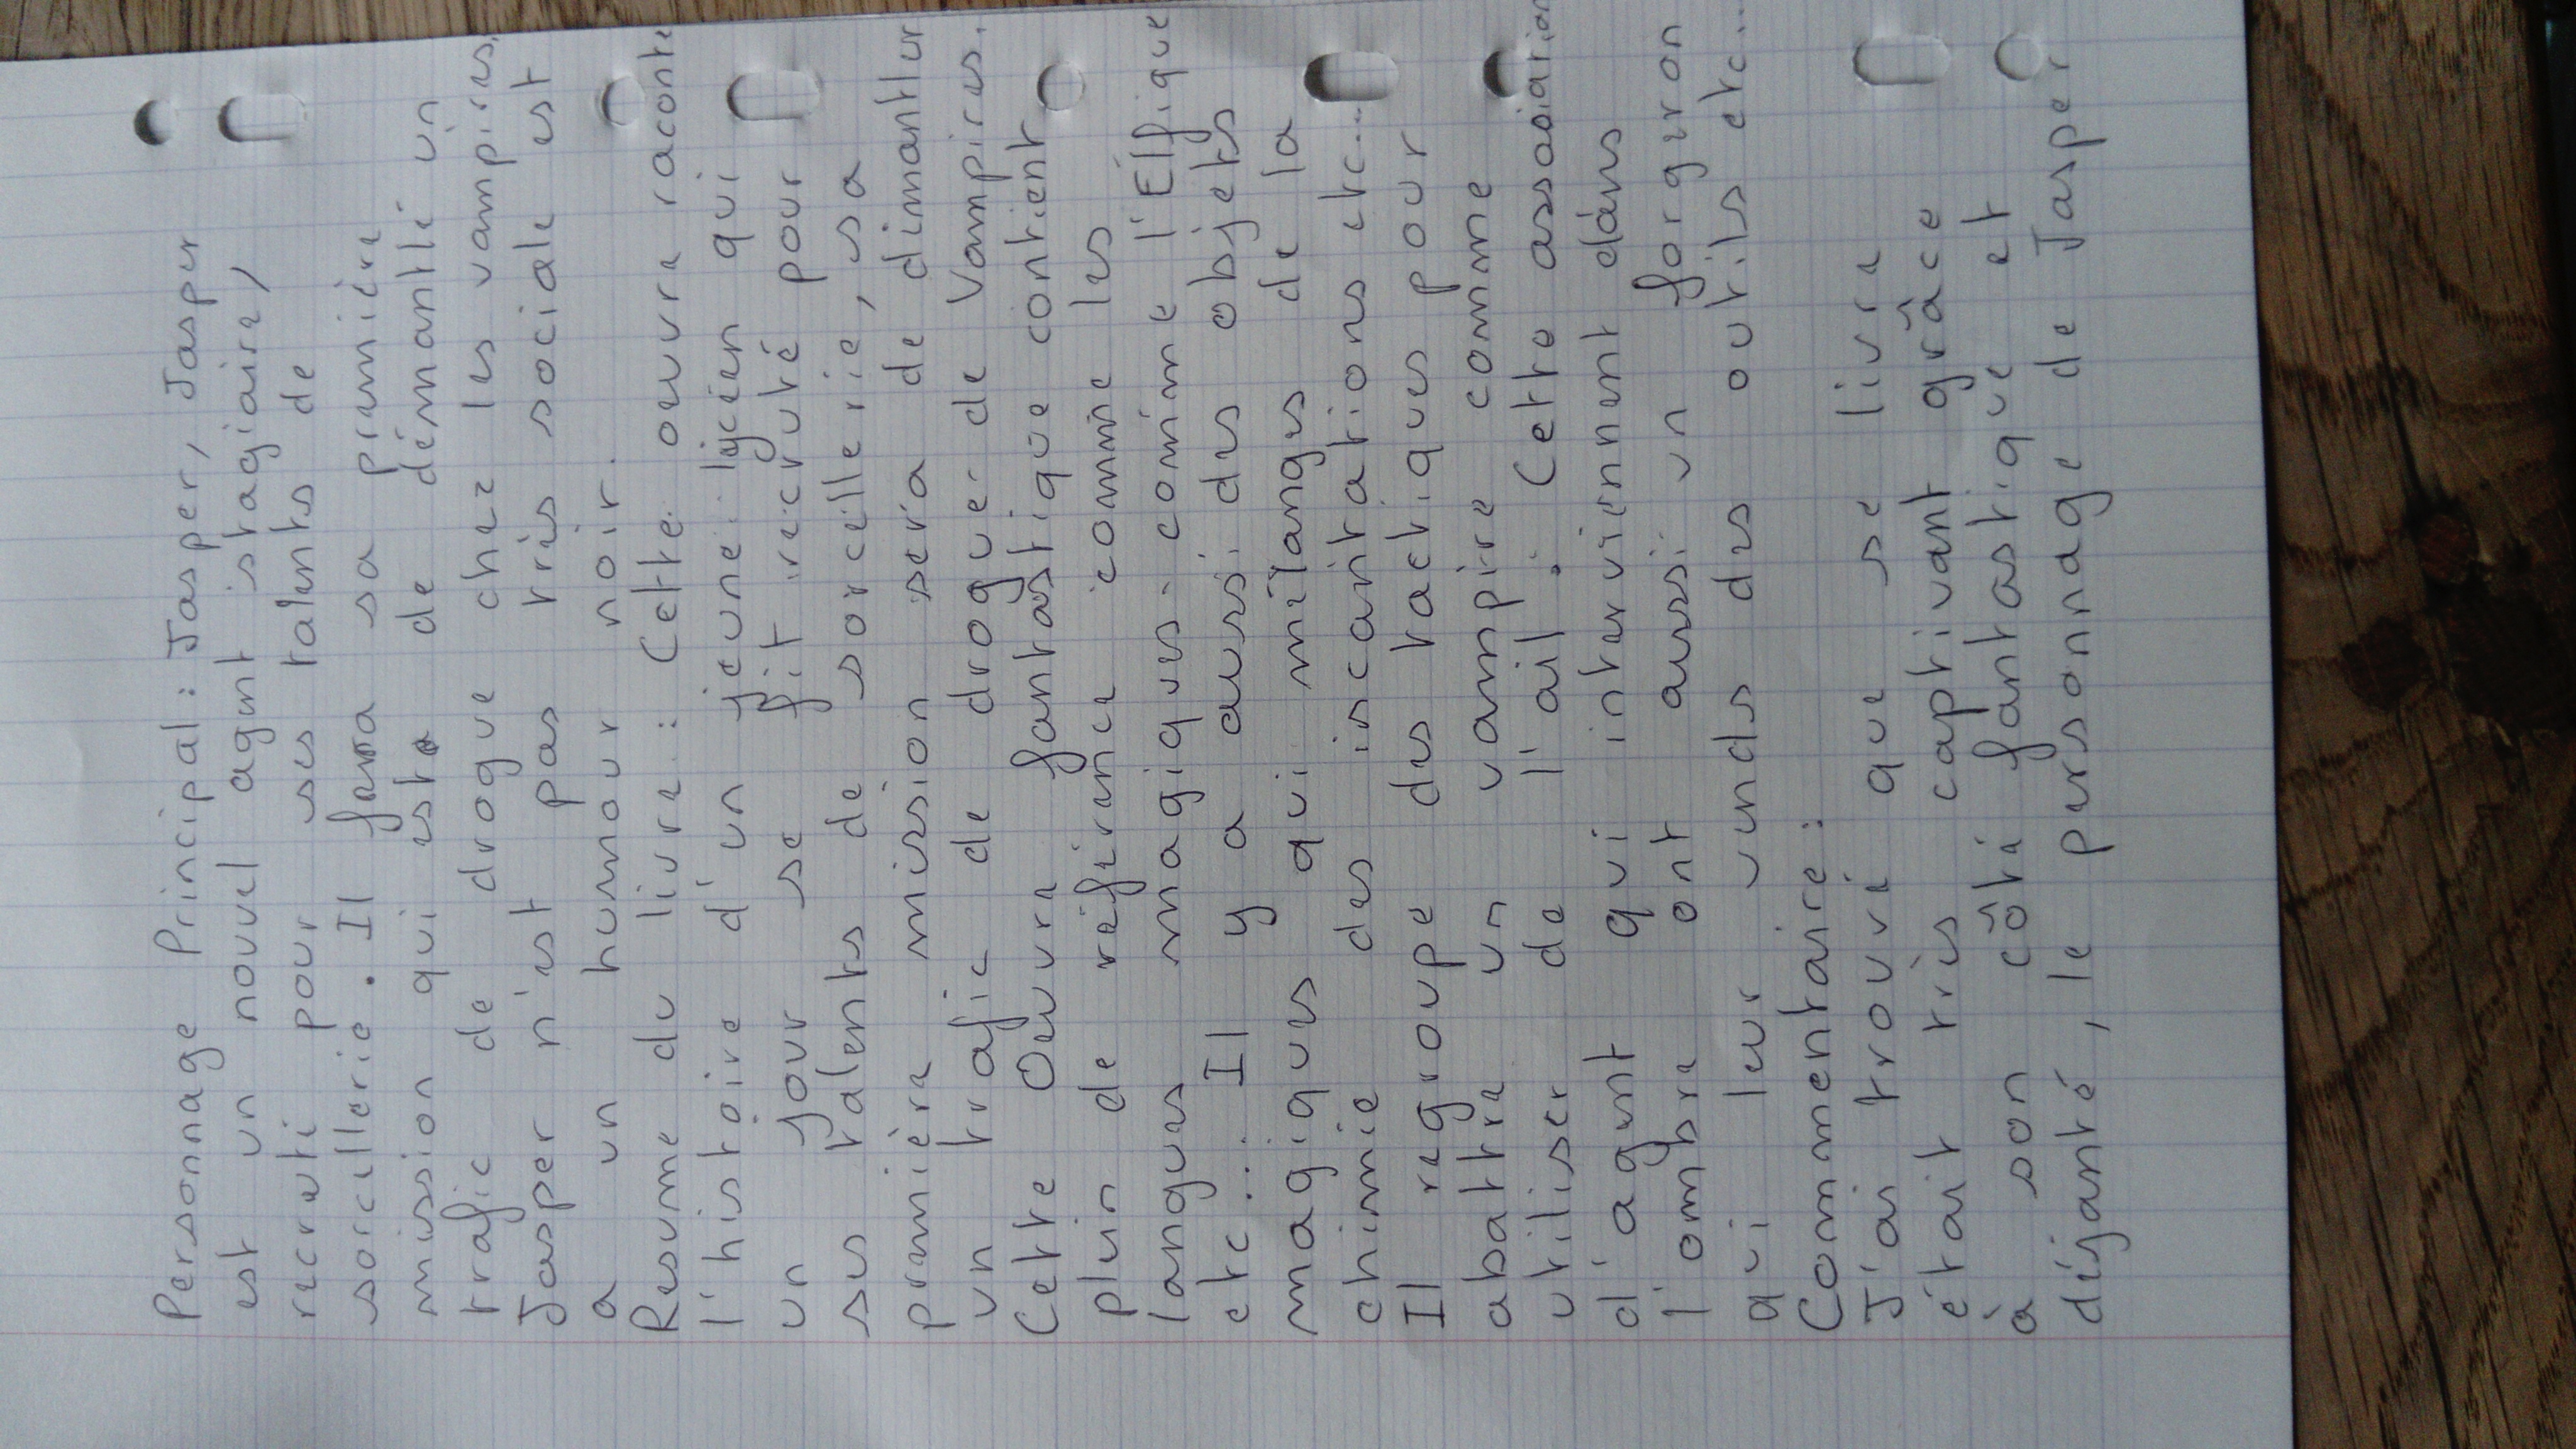 Personnage Principal : Jasper, Jasper
est un nouvel agent stagiaire,
recruté pour ses talents de
sorcellerie. Il fera sa première
mission qui est de démantlé un
trafic de drogue chez les vampires,
Jasper n'est pas très sociale est
a un humour noir.
Resume du livre : Cette ouvre raconte
l'histoire d'un jeune lycéen qui
un jour se fit recruté pour
ses talents de sorcellerie, sa
première mission sera de dimantler
un trafic de drogue de Vampires.
Cette Ouvre fantastique contient
plein de référence comme les
langues magiques comme l'Elfique
etc... Il y a aussi des objets
magiques qui mélanges de la
chimie des incantations etc...
Il regroupe des tactiques pour
abattre un vampire comme
utiliser de l'ail. Cette assosiation
d'agent qui interviennent dans
l'ombre ont aussi un forgeron
qui leur vends des outils etc...
Commentaire :
J'ai trouvé que se livre
était très captivant grâce
à son côté fantastique et
déjanté, le personnage de Jasper